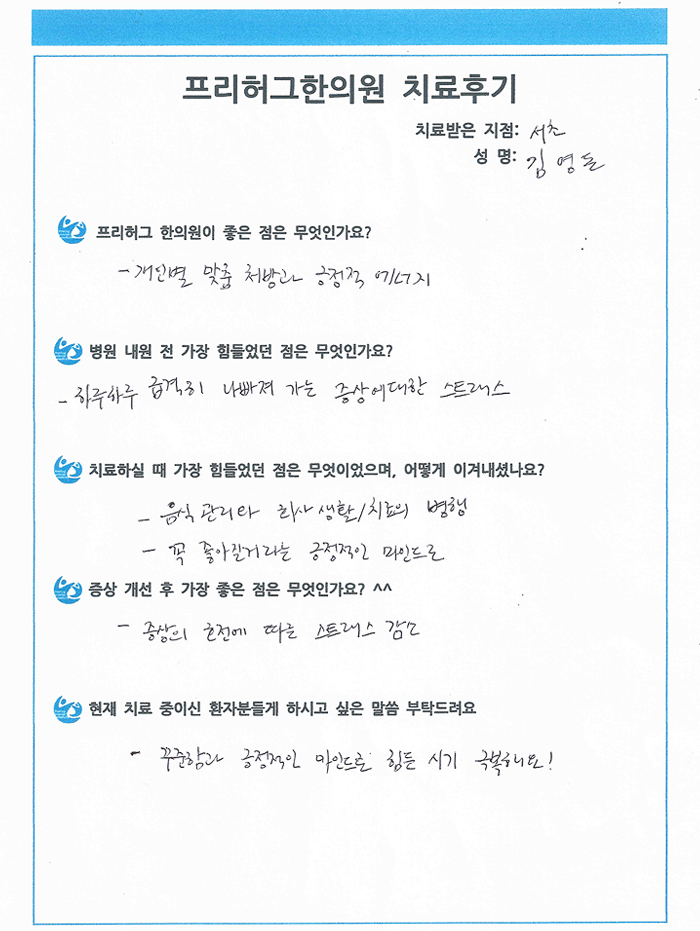 프리허그한의원 치료후기
치료받은 지점: 서초
성 명: 김영돈
프리허그 한의원이 좋은 점은 무엇인가요?
- 개인별 맞춤 처방과 긍정적 에너지
병원 내원 전 가장 힘들었던 점은 무엇인가요?
- 하루하루 급격히 나빠져 가는 증상에대한 스트레스
치료하실 때 가장 힘들었던 점은 무엇이었으며, 어떻게 이겨내셨나요?
- 음식관리와 회사생활/치료의 병행
- 꼭 좋아질거라는 긍정적인 마인드로
증상 개선 후 가장 좋은 점은 무엇인가요? ^^
- 증상의 호전에 따른 스트레스 감소
현재 치료 중이신 환자분들게 하시고 싶은 말씀 부탁드려요
- 꾸준함과 긍정적인 마인드로 힘든 시기 극복해요!